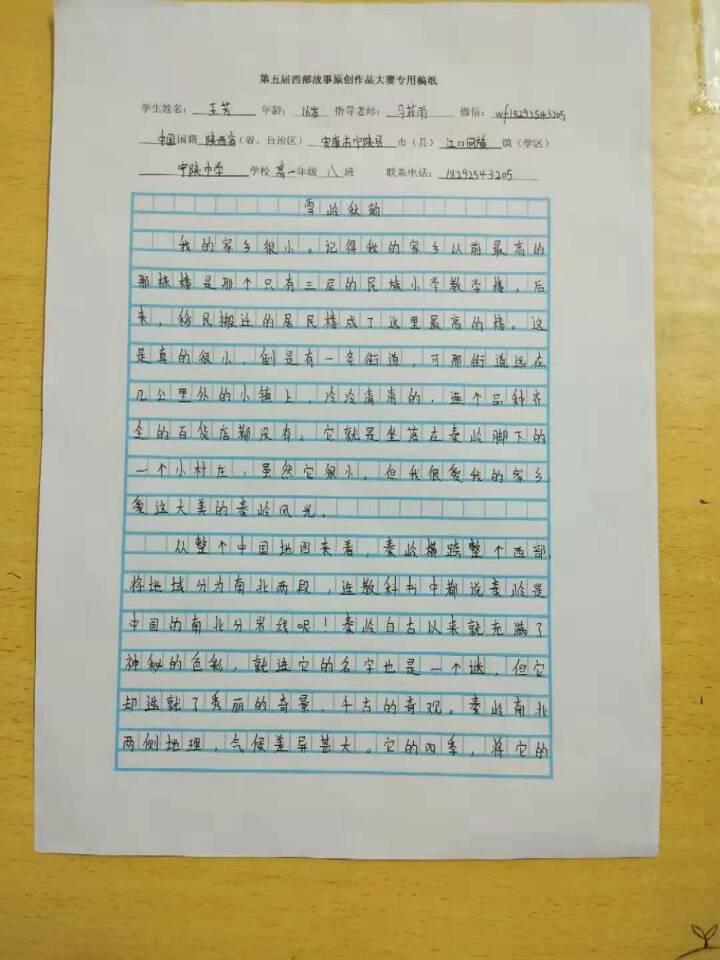 第五届西部故事原创作品大赛专用稿纸
学生姓名： 王芳 年龄： 16岁 指导老师： 马菲雨 微信： wf18292543205
中国国籍 陕西省（省、自治区） 安康市宁陕县 市（县） 江口回族 镇（学区）
宁陕中学 学校 高一年级 八 班 联系电话： 18292543205
雪岭秋韵
我的家乡很小。记得我的家乡以前最高的
那栋楼是那个只有三层的民族小学教学楼，后
来，移民搬迁的居民楼成了这里最高的楼。这
是真的很小，倒是有一条街道，可那街道远在
几公里外的小镇上，冷冷清清的，连个品种齐
全的百货店都没有。它就是坐落在秦岭脚下的
一个小村庄，虽然它很小，但我很爱我的家乡，
爱这大美的秦岭风光。
从整个中国地图来看，秦岭横跨整个西部，
将地域分为南北两段，连教科书中都说秦岭是
中国的南北分界线呢！秦岭自古以来就充满了
神秘的色彩，就连它的名字也是一个谜，但它
却造就了秀丽的奇景，千古的奇观。秦岭南北
两侧地理，气候差异甚大。它的四季，将它的